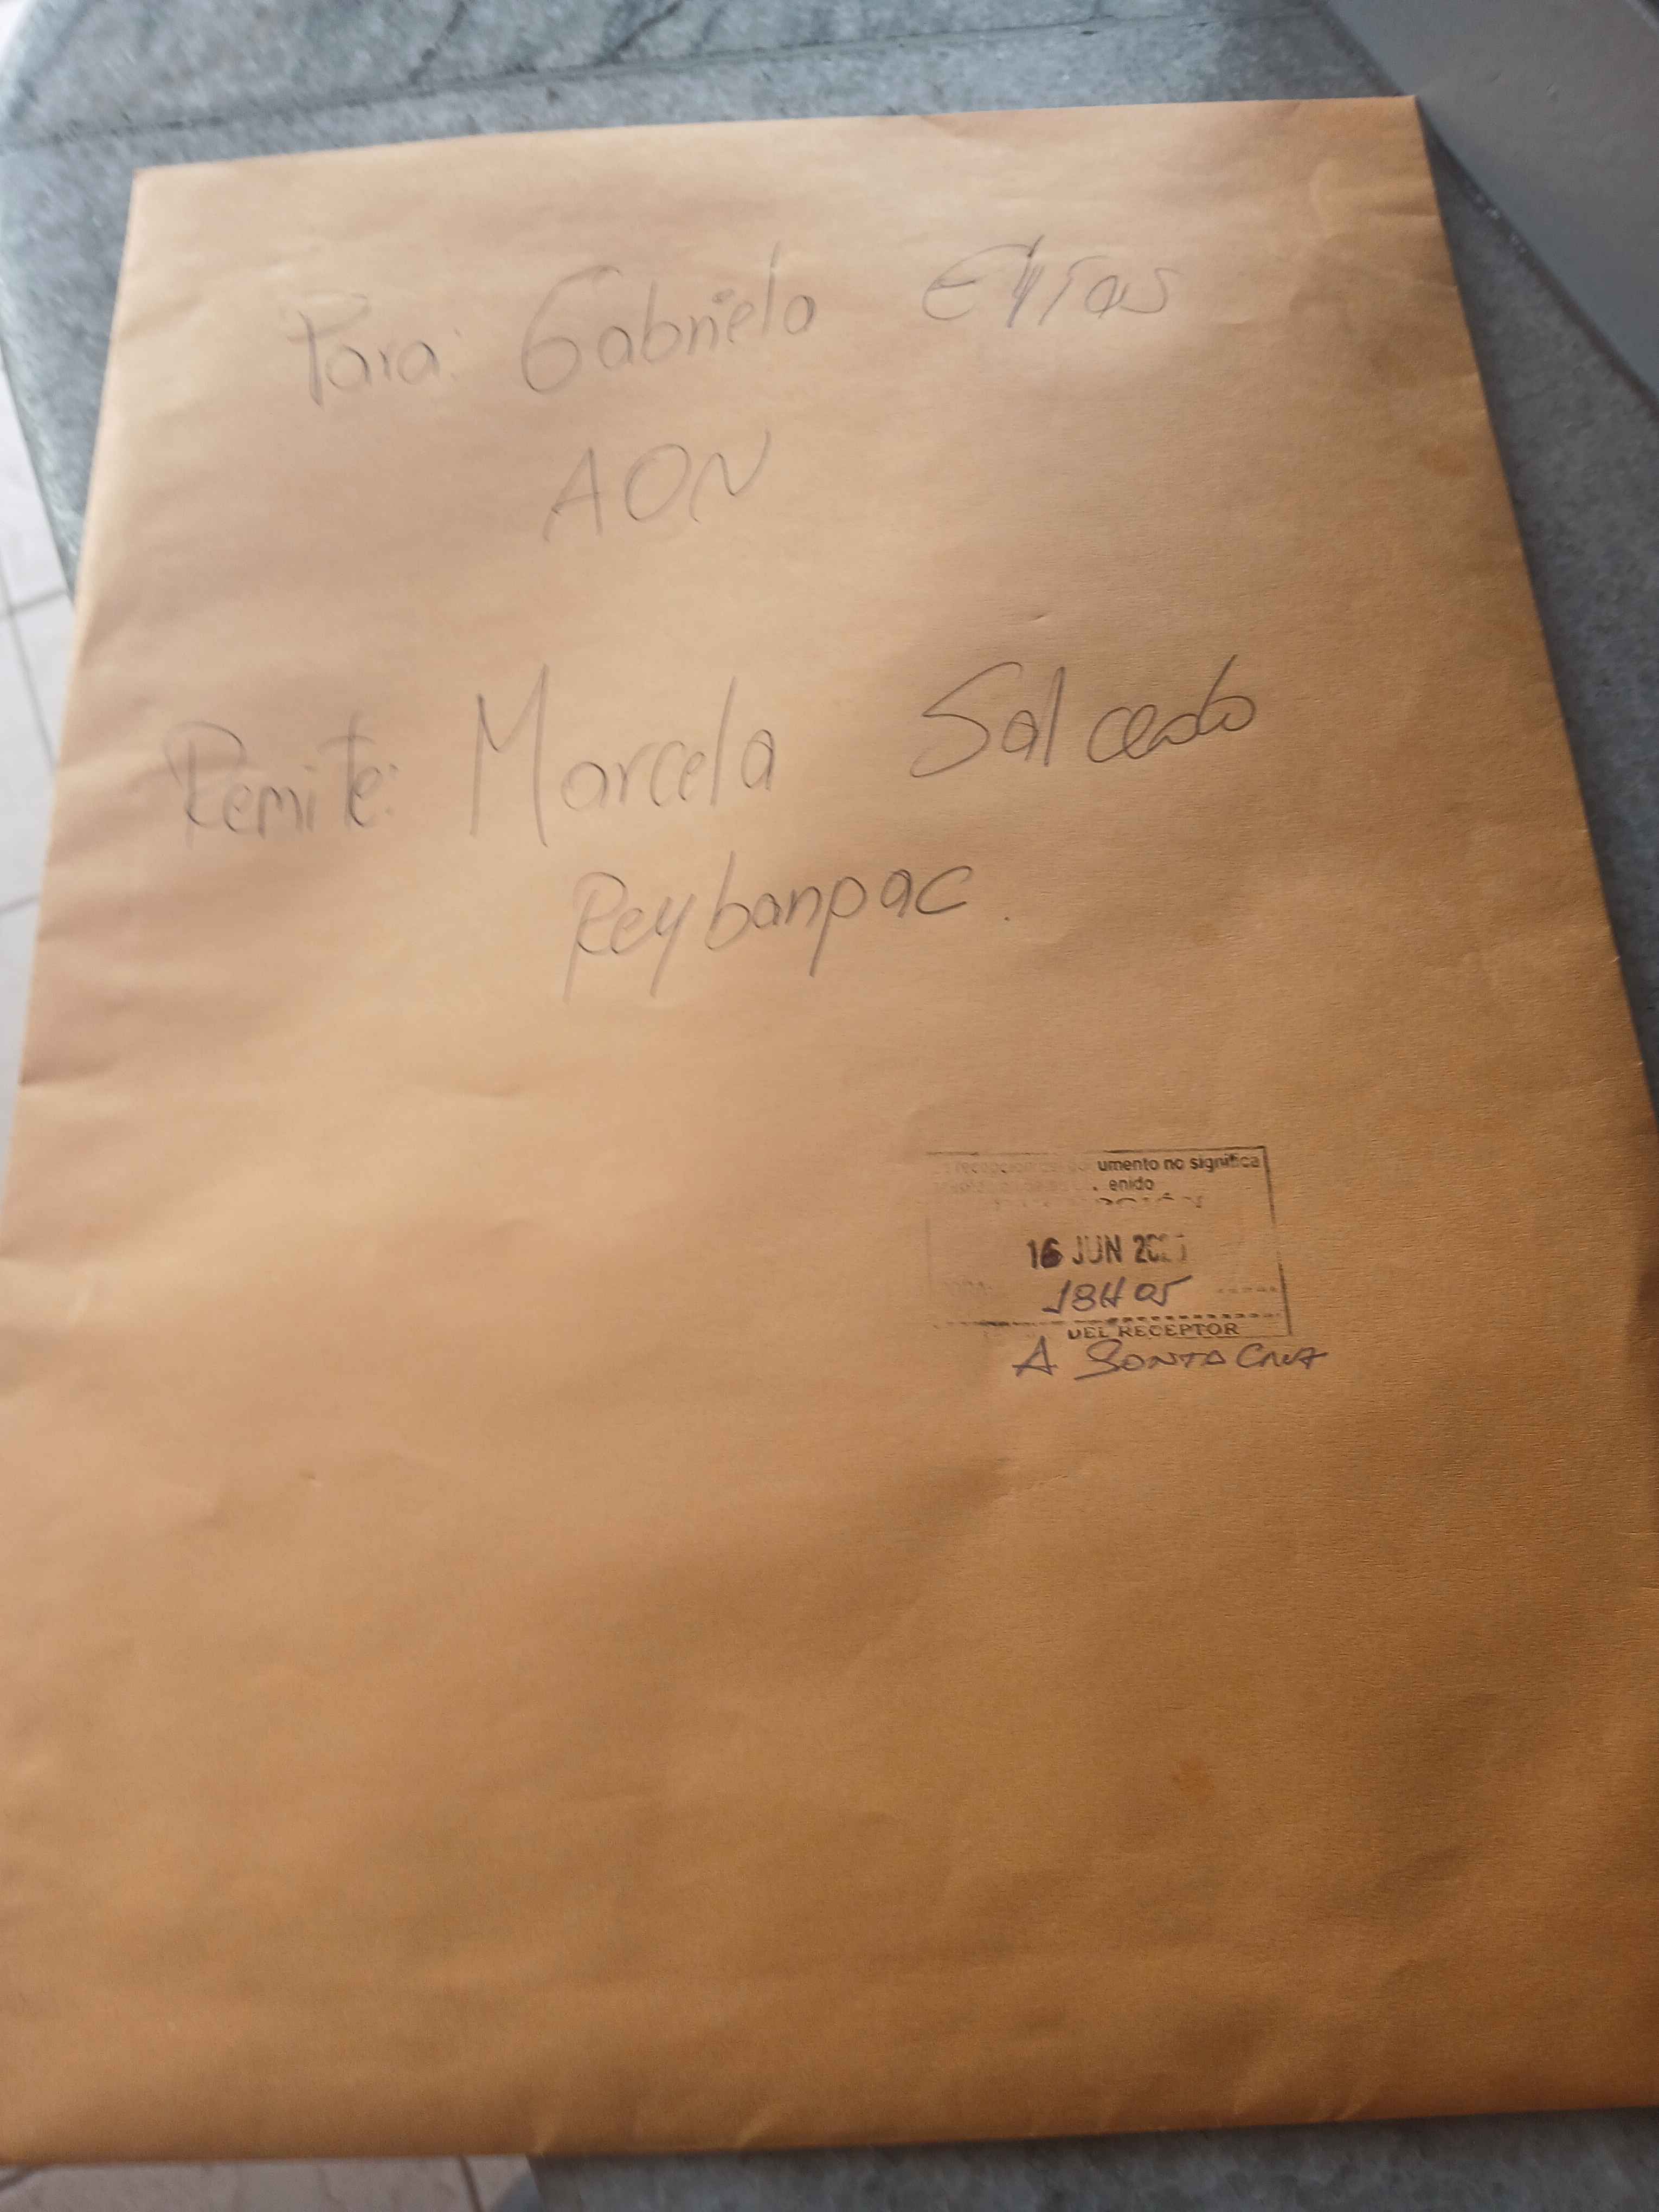 Para: Gabriela Elias
AON
Remite: Marcela Salcedo
Reybanpac.
recepción umento no significa
enido
16 JUN
DEL RECEPTOR
A SANTA CRUZ